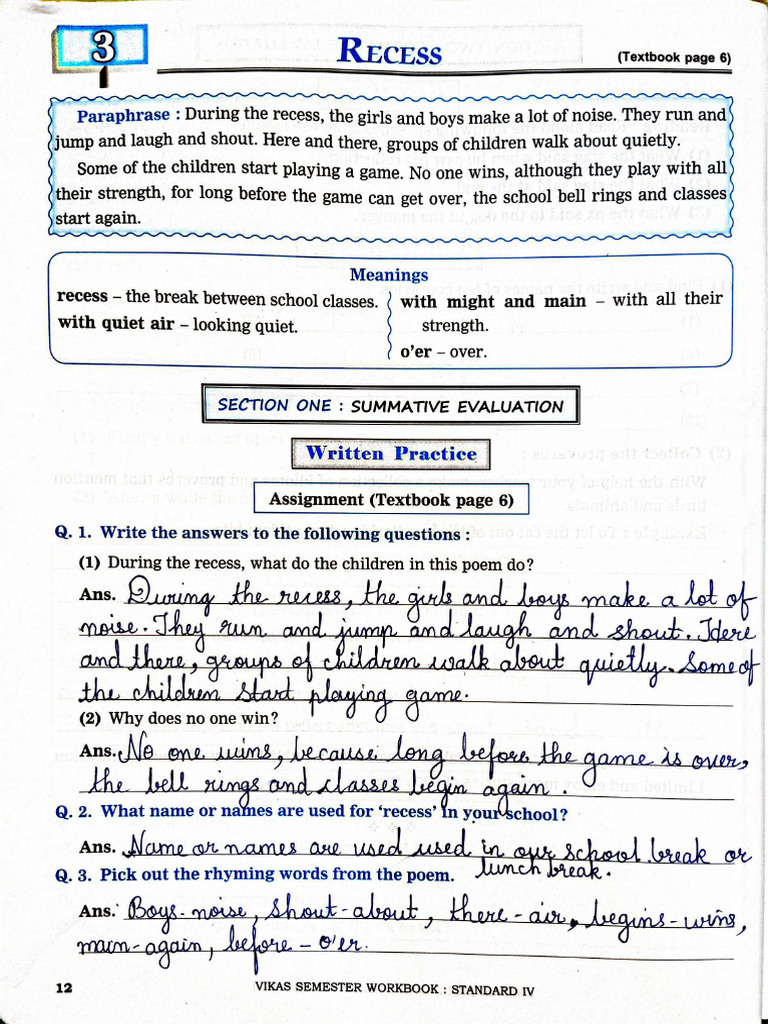 3
RECESS
(Textbook page 6)
Paraphrase : During the recess, the girls and boys make a lot of noise. They run and
jump and laugh and shout. Here and there, groups of children walk about quietly.
Some of the children start playing a game. No one wins, although they play with all
their strength, for long before the game can get over, the school bell rings and classes
start again.
Meanings
recess – the break between school classes.
with quiet air – looking quiet.
with might and main – with all their
strength.
o'er – over.
SECTION ONE : SUMMATIVE EVALUATION
Written Practice
Assignment (Textbook page 6)
Q. 1. Write the answers to the following questions :
(1) During the recess, what do the children in this poem do?
Ans. During the recess, the girls and boys make a lot of
noise. They run and jump and laugh and shout. Here
and there, groups of children walk about quietly. Some of
the children start playing game.
(2) Why does no one win?
Ans. No one wins, because long before the game is over,
the bell rings and classes begin again.
Q. 2. What name or names are used for 'recess' in your school?
Ans. Name or names are used used in our school break or
lunch break.
Q. 3. Pick out the rhyming words from the poem.
Ans. Boys-noise, shout-about, there-air, begins-wins,
main-again, before-o'er.
12
VIKAS SEMESTER WORKBOOK : STANDARD IV